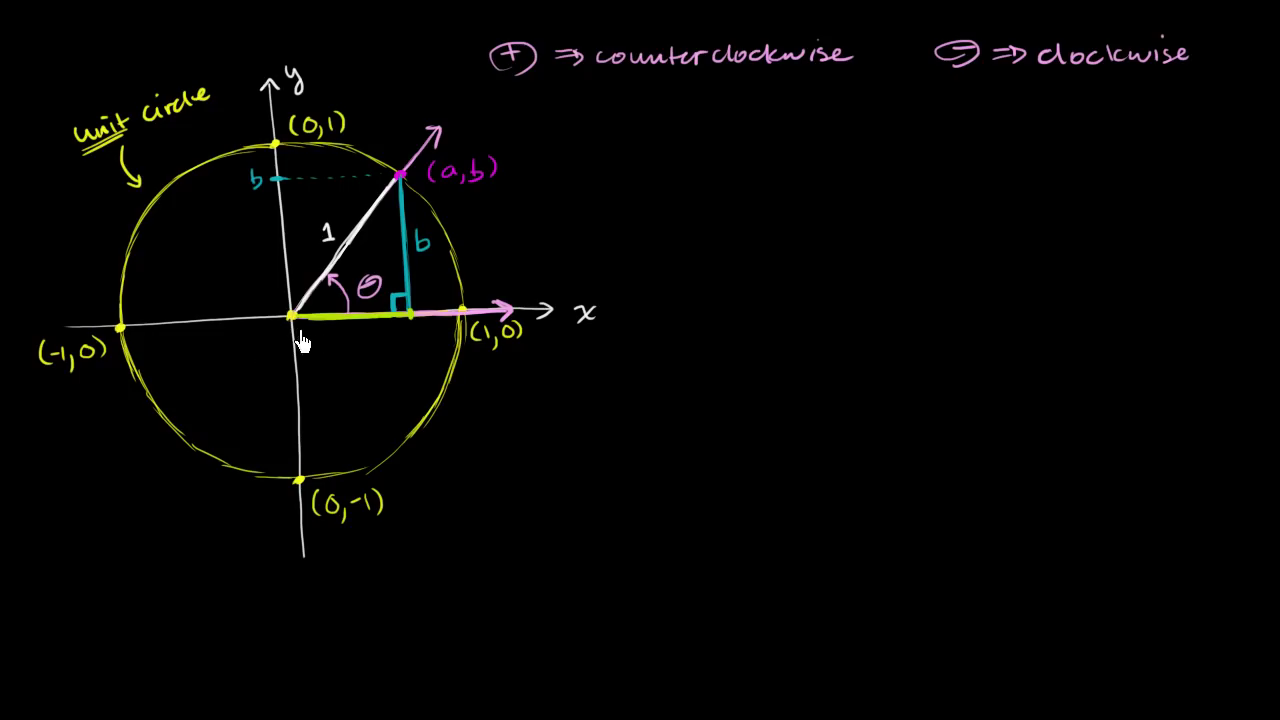 (+) ⇒ counterclockwise
(-) ⇒ clockwise
unit circle
y
(0,1)
b
(a,b)
1
b
θ
x
(1,0)
(-1,0)
(0,-1)